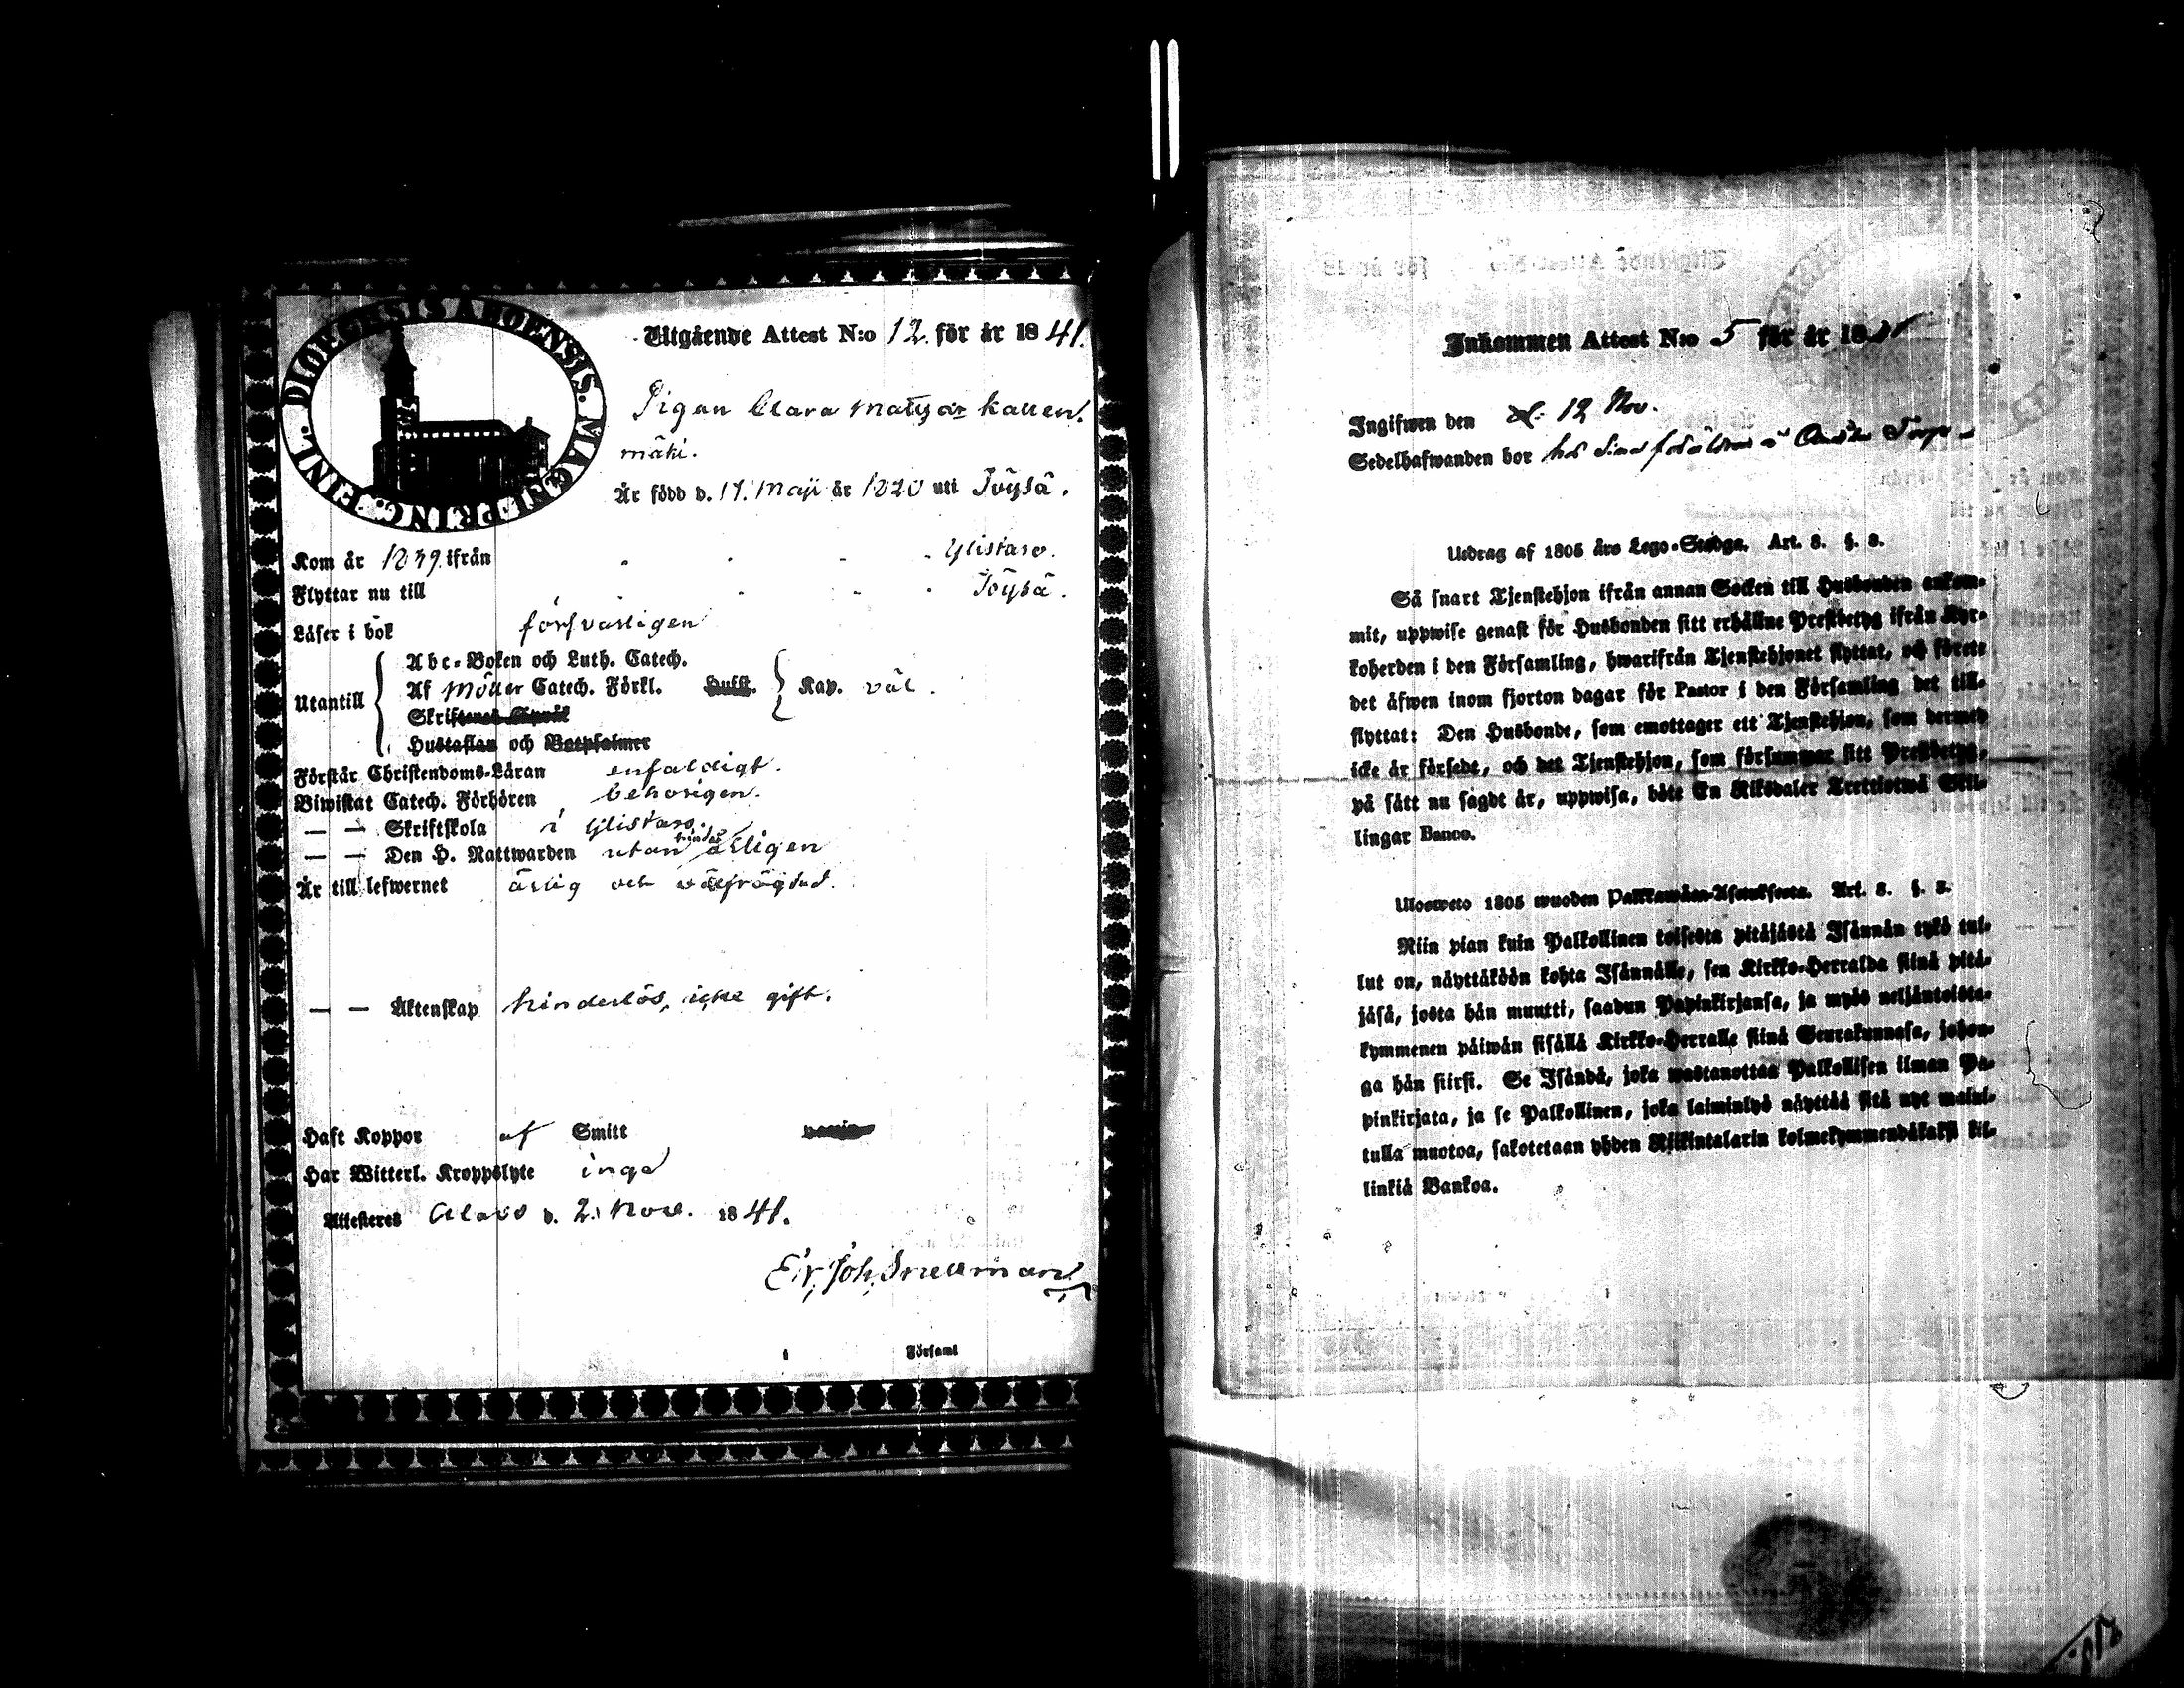 DIOECESIS ABOENSIS. MAGNI PRINC. FINL.
Utgående Attest N:o 12. för år 1841.
Pigan Clara Matsdr Kallen.
mäki.
Är född d. 17. Maji år 1820 uti Töysä.
Kom år 1839 ifrån Ylistaro.
Flyttar nu till Töysä.
Läser i bok försvarligen
Abc-Boken och Luth. Catech.
Utantill Af Möller Catech. Förkl. Hufst. Kap. väl.
Skriftenes Språk
Hustaflan och Botpsalmer
Förstår Christendoms-Läran enfaldigt.
Biwistat Catech. Förhören behörigen.
— — Skriftskola i Ylistaro.
— — Den H. Nattwarden utan hinder årligen
Är till lefwernet ärlig och välfrägdad.
— — Äktenskap hinderlös, icke gift.
Haft Koppor af Smitt
Har Witterl. Kroppslyte inga
Attesteres Alavo d. 2. Nov. 1841.
Er. Joh. Snellman
Församl
Inkommen Attest N:o 5 för år 1841
Ingifwen den 12 Nov.
Sedelhafwanden bor hos sina föräldrar
Utdrag af 1805 års Lego-Stadga. Art. 8. §. 8.
Så snart Tjenstehjon ifrån annan Socken till Husbonden ankom-
mit, uppwise genast för Husbonden sitt erhållne Prestbetyg ifrån Kyr-
koherden i den Församling, hwarifrån Tjenstehjonet flyttat, och förete
det äfwen inom fjorton dagar för Pastor i den Församling det till-
flyttat: Den Husbonde, som emottager ett Tjenstehjon, som dermed
icke är försedt, och det Tjenstehjon, som försummar sitt Prestbetyg,
på sätt nu sagdt är, uppwisa, böte En Riksdaler Trettiotwå Skil-
lingar Banco.
Uloswето 1805 wuoden Palkkawäen-Asetuksesta. Art. 8. §. 8.
Niin pian kuin Palkollinen toisesta pitäjästä Isännän tykö tul-
lut on, näyttäköön kohta Isännälle, sen Kirkko-Herralda siinä pitä-
jäsä, josta hän muutti, saadun Papinkirjansa, ja myös neljäntoista-
kymmenen päiwän sisällä Kirkko-Herralle siinä Seurakunnasa, johon-
ga hän siirsi. Se Isändä, joka wastanottaa Palkollisen ilman Pa-
pinkirjata, ja se Palkollinen, joka laiminlyö näyttää sitä nyt mainit-
tulla muotoa, sakotetaan yhden Riikintalarin kolmekymmendäkaksi kil-
linkiä Bankoa.